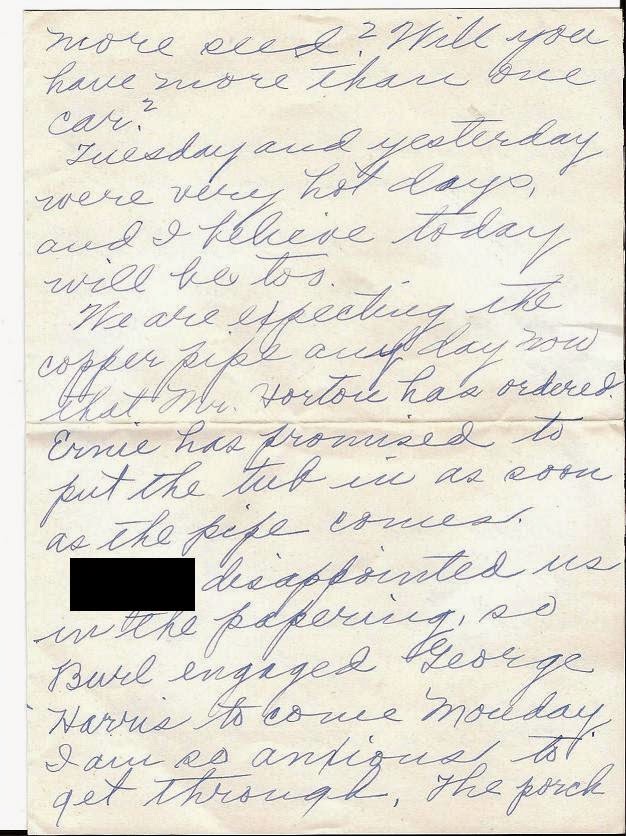 more seed? Will you
have more than one
car?
Tuesday and yesterday
were very hot days,
and I believe today
will be too.
We are expecting the
copper pipe any day now
that Mr. Horton has ordered.
Ernie has promised to
put the tub in as soon
as the pipe comes.
disappointed us
in the papering, so
Burl engaged George
Harris to come Monday.
I am so anxious to
get through. The porch